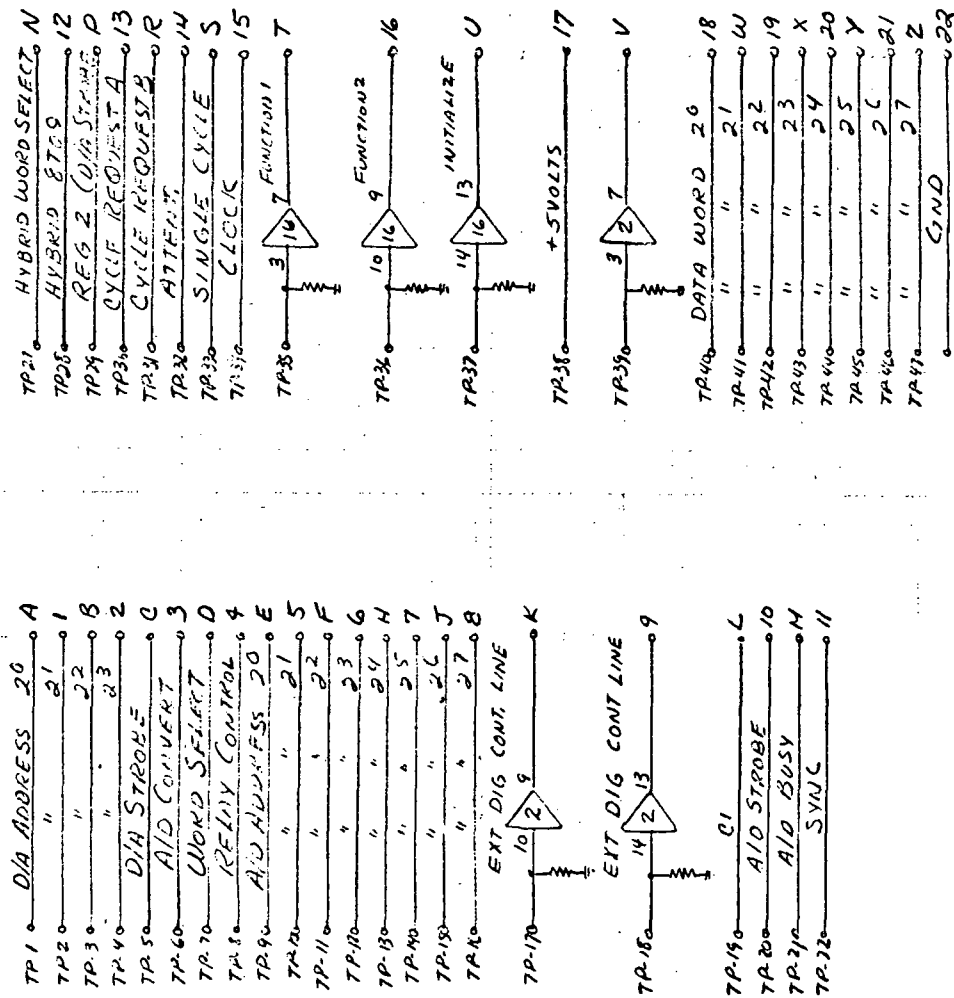 TP1 D/A ADDRESS 2⁰ A
TP2 " 2¹ 1
TP-3 " 2² B
TP-4 " 2³ 2
TP-5 D/A STROBE C
TP-6 A/D CONVERT 3
TP-7 WORD SELECT D
TP-8 RELAY CONTROL 4
TP-9 A/D ADDRESS 2⁰ E
TP-10 " " 2¹ 5
TP-11 " " 2² F
TP-12 " " 2³ 6
TP-13 " " 2⁴ H
TP-14 " " 2⁵ 7
TP-15 " " 2⁶ J
TP-16 " " 2⁷ 8
EXT DIG CONT. LINE
TP-17 10 2 9 K
EXT DIG CONT LINE
TP-18 14 2 13 9
TP-19 C1 L
TP-20 A/D STROBE 10
TP-21 A/D BUSY M
TP-22 SYNC 11
TP-27 HYBRID WORD SELECT N
TP-28 HYBRID 8TO9 12
TP-29 REG 2 (D/A STROBE P
TP-30 CYCLE REQUEST A 13
TP-31 CYCLE REQUEST B R
TP-32 ATTENT. 14
TP-33 SINGLE CYCLE S
CLOCK 15
FUNCTION 1
TP-35 3 16 7 T
FUNCTION 2
TP-36 10 16 9 16
INITIALIZE
TP-37 14 16 13 U
TP-38 +5VOLTS 17
TP-39 3 2 7 V
TP-40 DATA WORD 2⁰ 18
TP-41 " " 2¹ W
TP-42 " " 2² 19
TP-43 " " 2³ X
TP-44 " " 2⁴ 20
TP-45 " " 2⁵ Y
TP-46 " " 2⁶ 21
TP-47 " " 2⁷ Z
GND 22